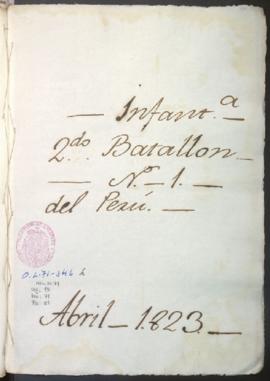 — Infant.a —
2.do Batallon —
— N.o 1. —
del Perú. —
O.L.71-346 L
Abril — 1.823. —